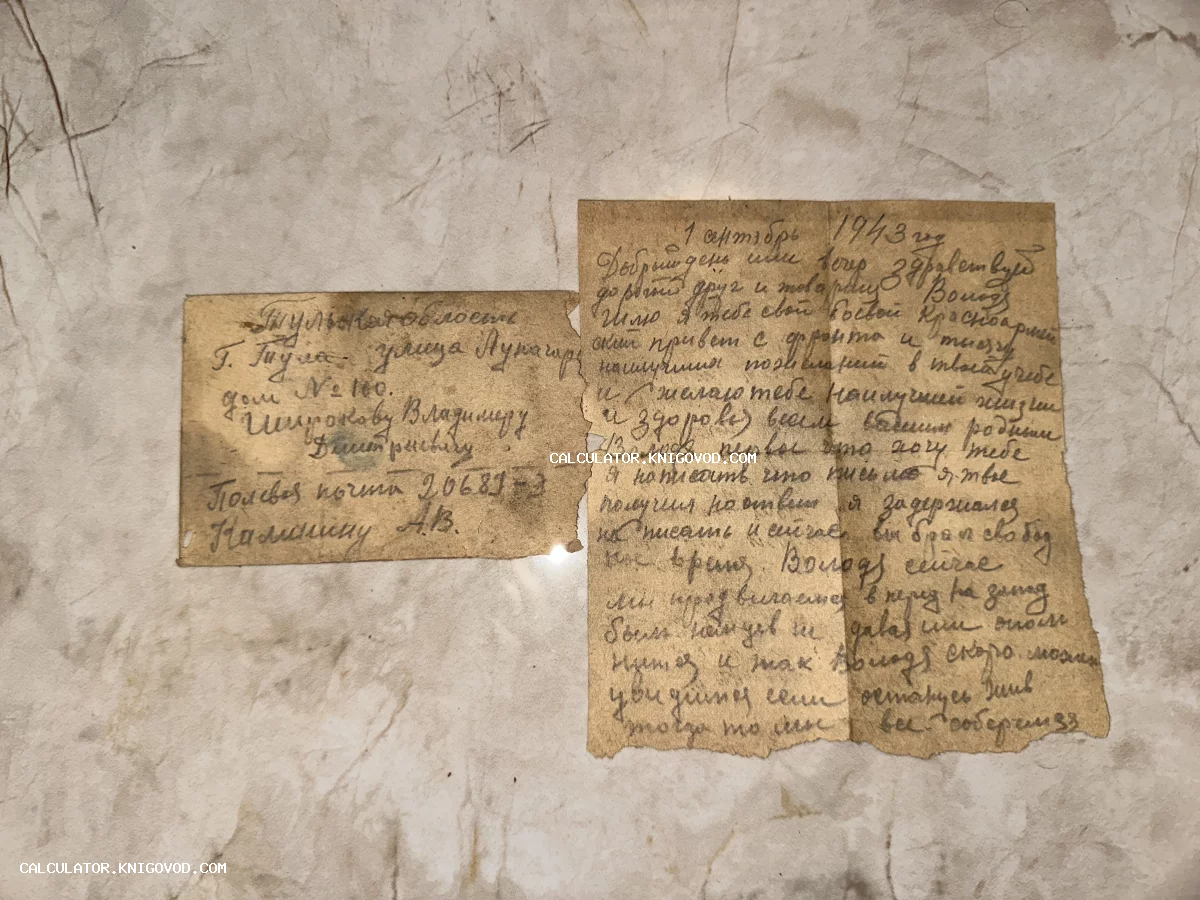 Тульская область
г. Тула улица Луначар
дом № 100.
Широкову Владимеру
Дмитриевичу
Полевая почта 20689-З
Калинину А.В.
1 сентябрь 1943 год
Добрый день или вечер Здравствуй
дорогой друг и товарищ Володя
шлю я тебе свой боевой Красноармей
ский привет с фронта и тысячу
наилучших пожеланий в твоей учебе
и желаю тебе наилучшей жизни
и здоровья всем вашим родным
Володя первое что хочу тебе
я написать что письмо я твое
получил на ответ я задержался
написать и сейчас выбрал свобод
ное время. Володя сейчас
мы продвигаемся вперед на запад
бьем немцев не давая им
и так Володя скоро может
увидимся если останусь жив
тогда то мы все соберемся
CALCULATOR.KNIGOVOD.COM
CALCULATOR.KNIGOVOD.COM